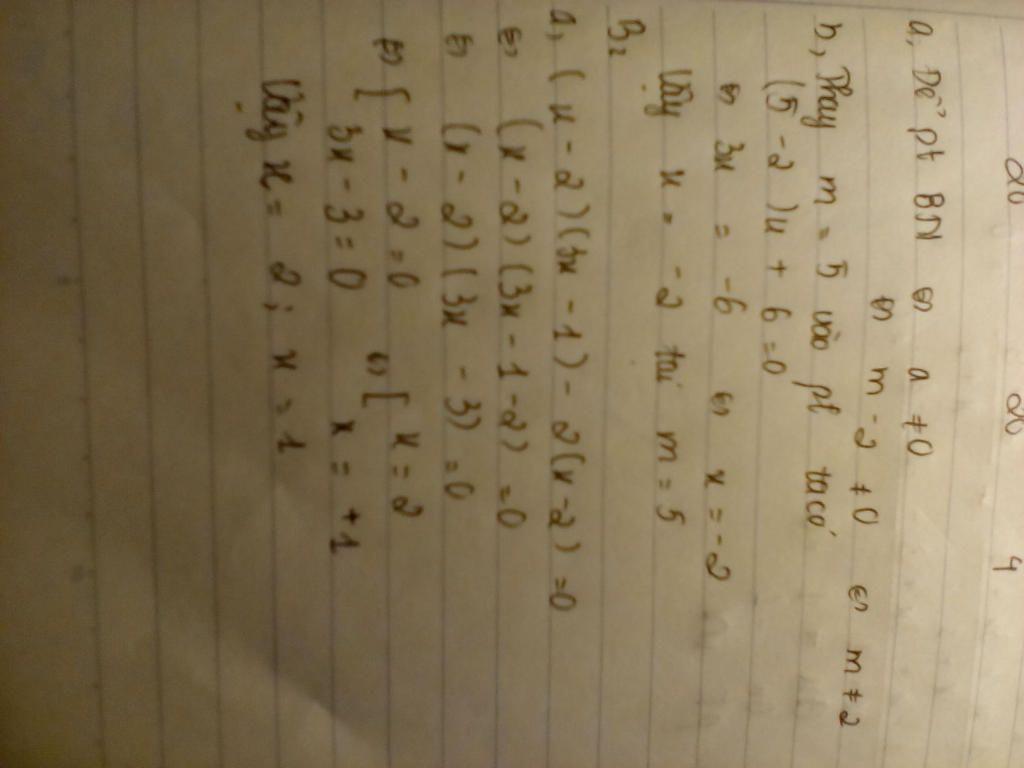 a, Để pt BN ⇔ a ≠ 0
⇔ m - 2 ≠ 0 ⇔ m ≠ 2
b, Thay m = 5 vào pt ta có
(5 - 2)x + 6 = 0
⇔ 3x = -6 ⇔ x = -2
Vậy x = -2 tại m = 5
B2
a, (x - 2)(3x - 1) - 2(x - 2) = 0
⇔ (x - 2)(3x - 1 - 2) = 0
⇔ (x - 2)(3x - 3) = 0
⇔ [ x - 2 = 0 ⇔ [ x = 2
3x - 3 = 0 x = +1
Vậy x = 2 ; x = 1